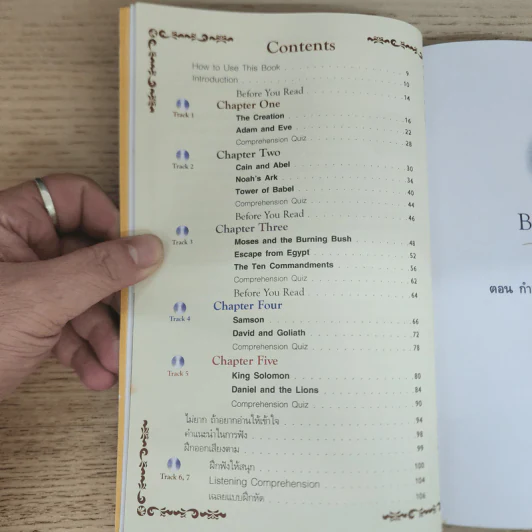 Contents
How to Use This Book 9
Introduction 10
Before You Read 14
Chapter One
Track 1
The Creation 16
Adam and Eve 22
Comprehension Quiz 28
Chapter Two
Track 2
Cain and Abel 30
Noah's Ark 34
Tower of Babel 40
Comprehension Quiz 44
Before You Read 46
Chapter Three
Track 3
Moses and the Burning Bush 48
Escape from Egypt 52
The Ten Commandments 56
Comprehension Quiz 62
Before You Read 64
Chapter Four
Track 4
Samson 66
David and Goliath 72
Comprehension Quiz 78
Chapter Five
Track 5
King Solomon 80
Daniel and the Lions 84
Comprehension Quiz 90
ไม่ยาก ถ้าอยากอ่านให้เข้าใจ 94
คำแนะนำในการฟัง 98
ฝึกออกเสียงตาม 99
Track 6, 7
ฝึกฟังให้สนุก 100
Listening Comprehension 104
เฉลยแบบฝึกหัด 106
B
ตอน กำ